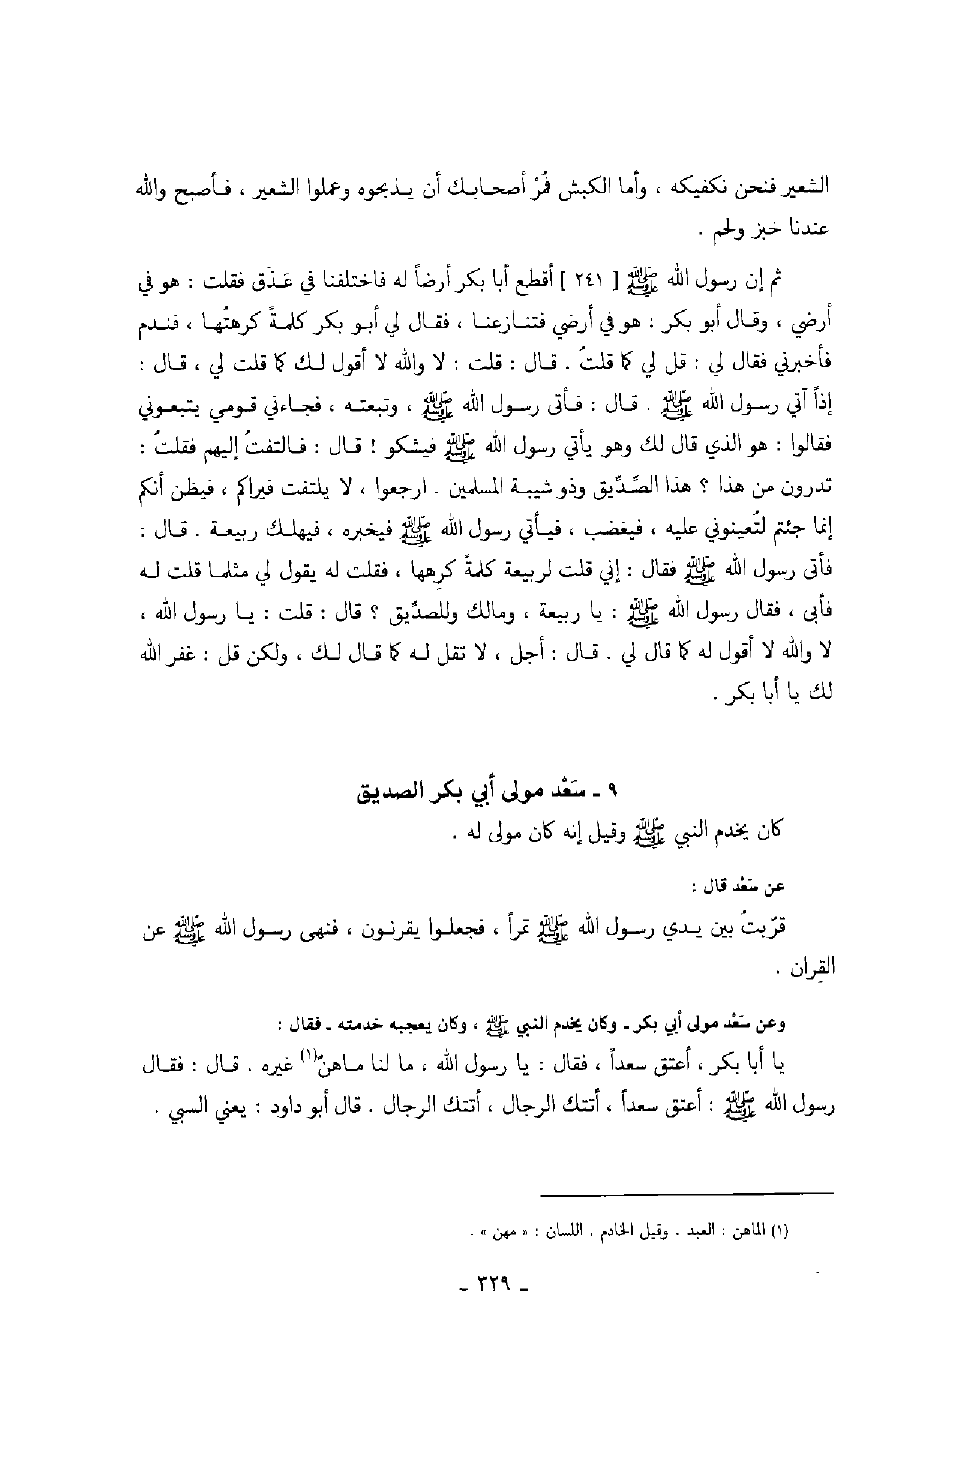 الشعير فنحن نكفيكه ، وأما الكبش فمُرْ أصحابك أن يذبحوه وعملوا الشعير ، فأصبح والله
عندنا خبز ولحم .
ثم إن رسول الله ﷺ [ ٢٤١ ] أقطع أبا بكر أرضاً له فاختلفنا في عَذْق فقلت : هو في
أرضي ، وقال أبو بكر : هو في أرضي فتنازعنا ، فقال لي أبو بكر كلمةً كرهتُها ، فندم
فأخبرني فقال لي : قل لي كما قلتُ . قال : قلت : لا والله لا أقول لك كما قلت لي ، قال :
إذاً آتي رسول الله ﷺ . قال : فأتى رسول الله ﷺ ، وتبعته ، فجاءني قومي يتبعوني
فقالوا : هو الذي قال لك وهو يأتي رسول الله ﷺ فيشكو ! قال : فالتفتُ إليهم فقلتُ :
تدرون من هذا ؟ هذا الصِّدّيق وذو شيبة المسلمين . ارجعوا ، لا يلتفت فيراكم ، فيظن أنكم
إنما جئتم لتُعينوني عليه ، فيغضب ، فيأتي رسول الله ﷺ فيخبره ، فيهلك ربيعة . قال :
فأتى رسول الله ﷺ فقال : إني قلت لربيعة كلمةً كرهها ، فقلت له يقول لي مثلما قلت له
فأبى ، فقال رسول الله ﷺ : يا ربيعة ، ومالك وللصدّيق ؟ قال : قلت : يا رسول الله ،
لا والله لا أقول له كما قال لي . قال : أجل ، لا تقل له كما قال لك ، ولكن قل : غفر الله
لك يا أبا بكر .
٩ ـ سَعْد مولى أبي بكر الصديق
كان يخدم النبي ﷺ وقيل إنه كان مولى له .
عن سَعْد قال :
قرّبتُ بين يدي رسول الله ﷺ تمراً ، فجعلوا يقرنون ، فنهى رسول الله ﷺ عن
القِران .
وعن سَعْد مولى أبي بكر ـ وكان يخدم النبي ﷺ ، وكان يعجبه خدمته ـ فقال :
يا أبا بكر ، أعتق سعداً ، فقال : يا رسول الله ، ما لنا ماهنٌ(١) غيره . قال : فقال
رسول الله ﷺ : أعتق سعداً ، أتتك الرجال ، أتتك الرجال . قال أبو داود : يعني السبي .
(١) الماهن : العبد . وقيل الخادم . اللسان : « مهن » .
ـ ٣٢٩ ـ